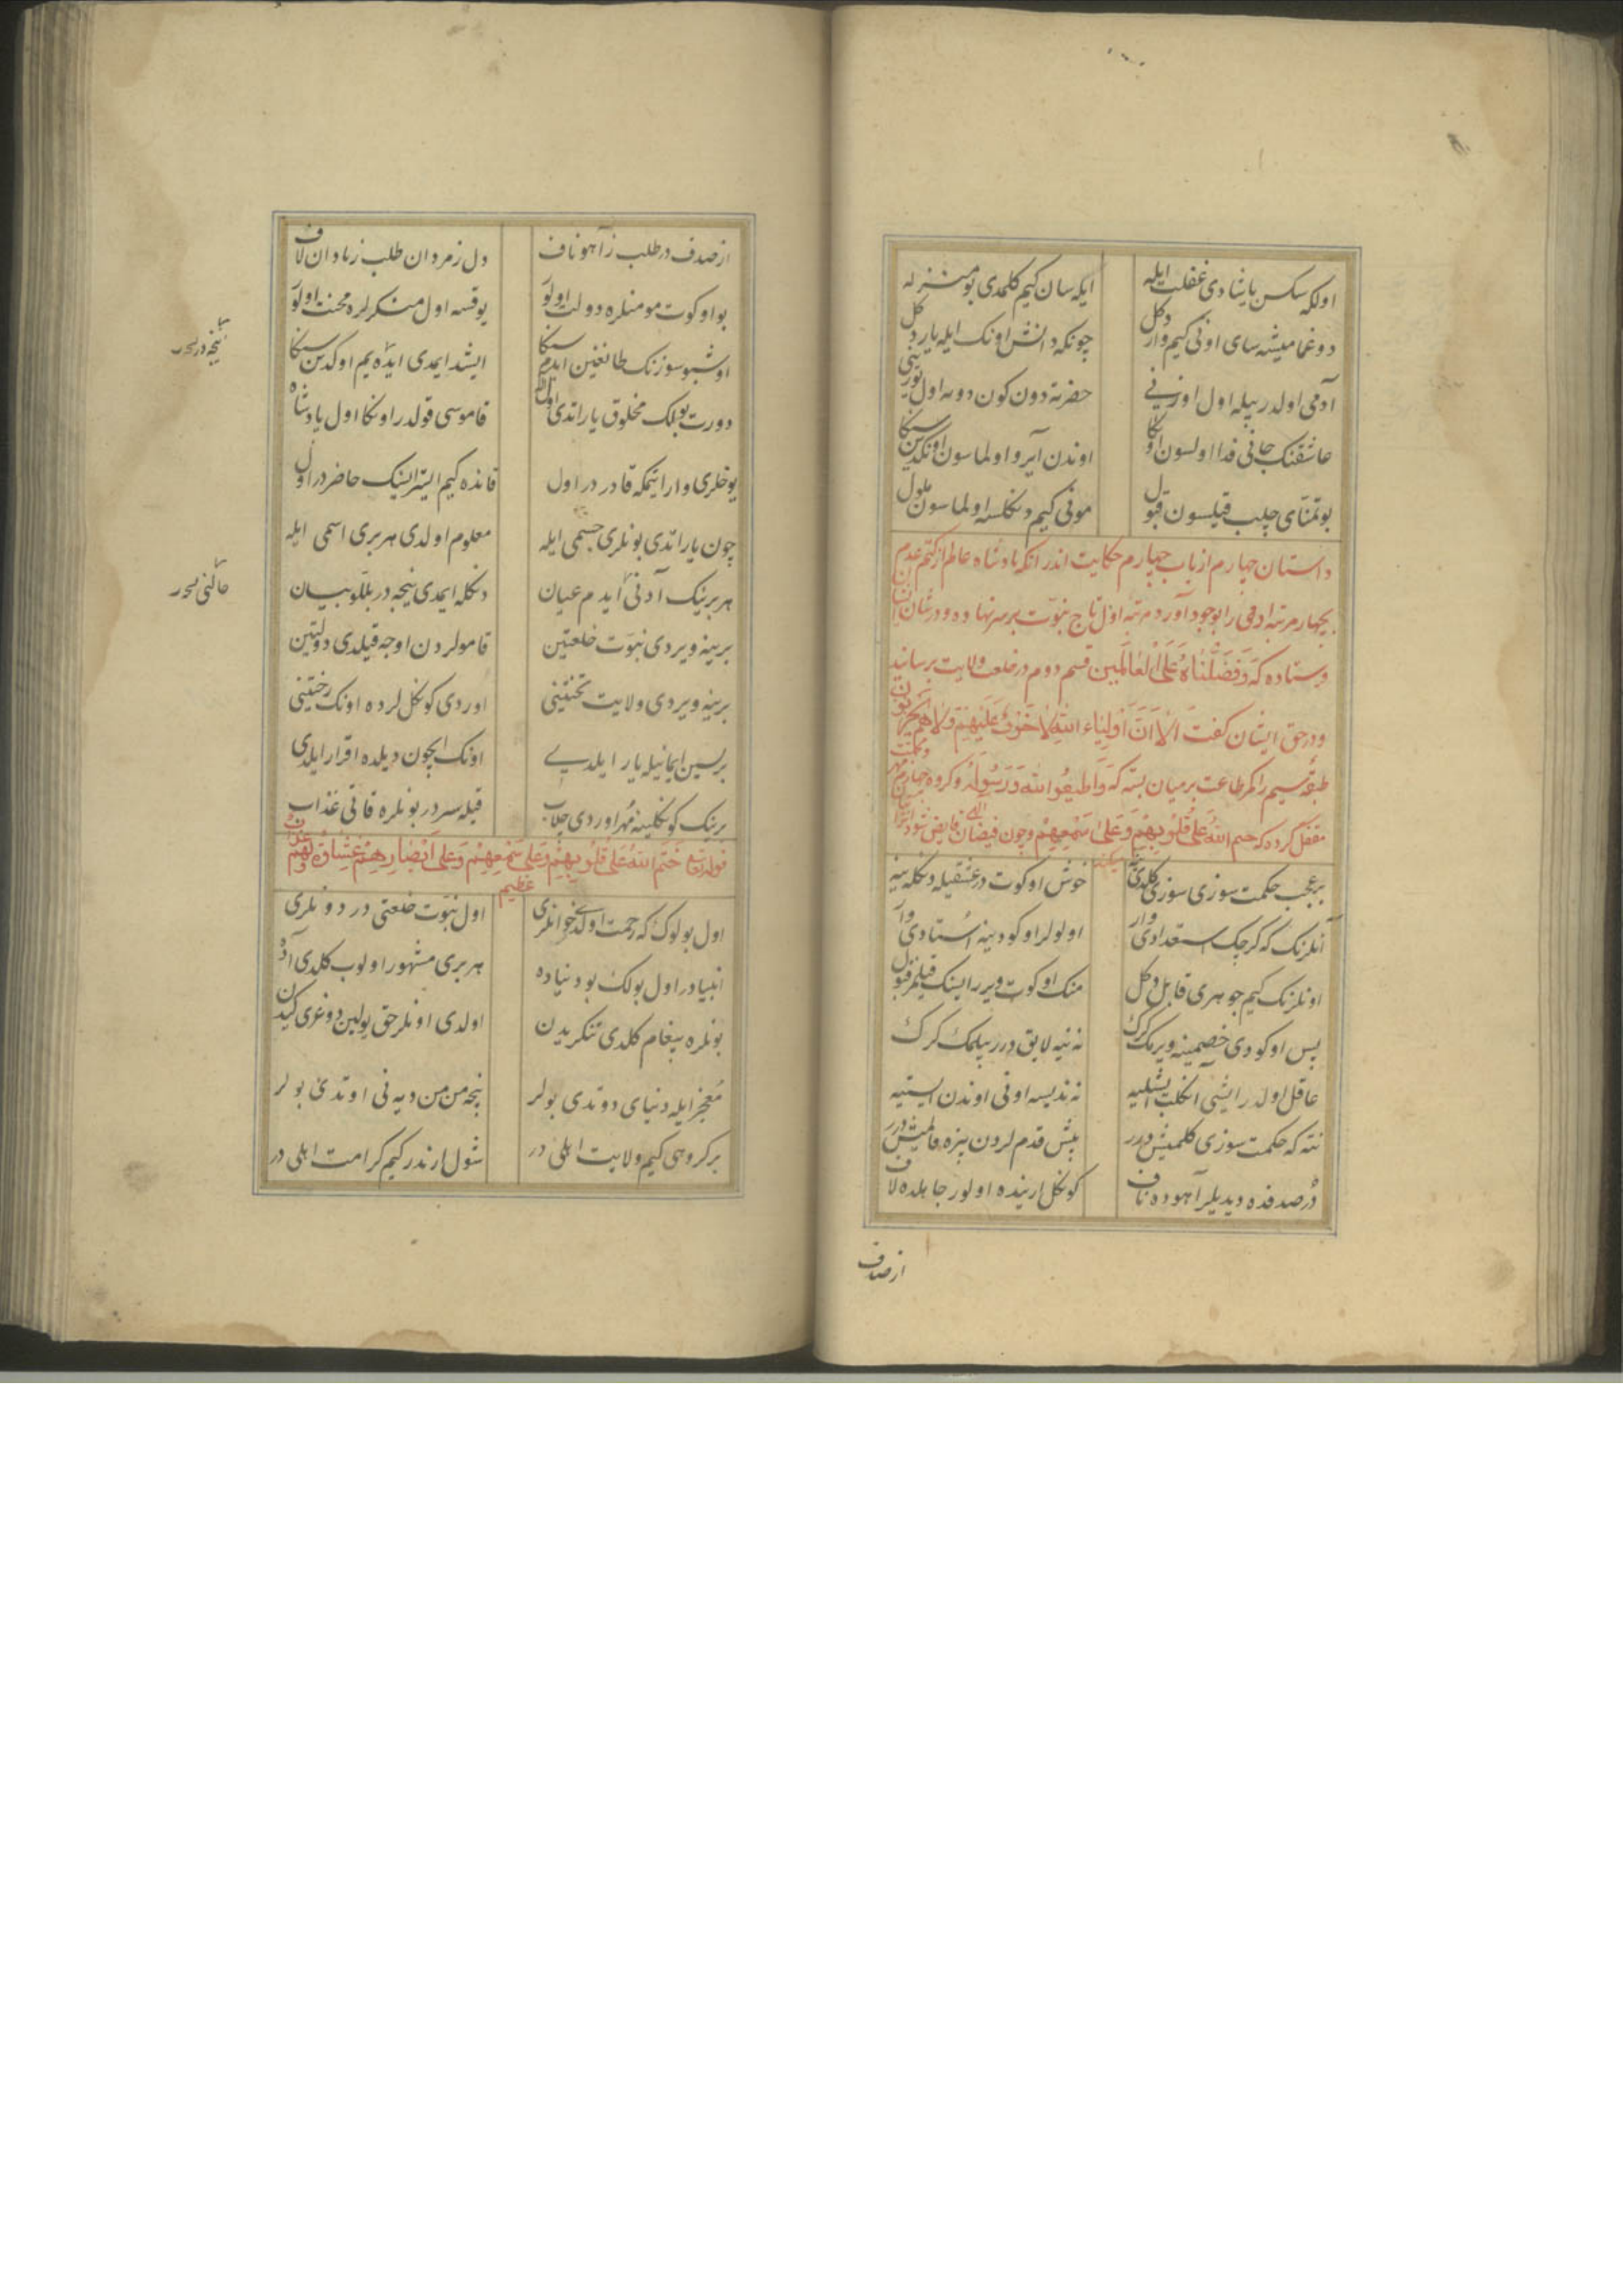 اولكه سكسن ياشادی غفلت ايله ايكه سان كيم كلمدی بو منزله
دوغمامیشه سای اونی كيم وار دكل چونكه دانش اونك ايله يار دكل
آدمی اولدر بيله اول اوزینی حضرته دون كون دوته اول یوزینی
عاشقنك جانی فدا اولسون اوكا اوندن آيرو اولماسون اوكدین سكا
بو تمنای چلب قیلسون قبول مونی كيم دكلسه اولماسون ملول
داستان چهارم از باب چهارم حكايت اندر انكه پادشاه عالم از كتم عدم
بچهار مرتبه ادمی را بوجود آورد مرتبه اول تاج نبوت بر سر نهاده و در شان ایشان
فرستاده كه وَفَضَّلْنَاهُ عَلَى الْعَالَمِين قسم دوم در خلعت ولايت برسانيد
و در حق ایشان كفت اَلَا اَنَّ اَوْلِيَاء اللهِ لَا خَوْفٌ عَلَيْهِمْ وَلَا هُمْ يَحْزَنُونَ
طبقه سیم را كمر طاعت بر میان بسته كه وَاَطِيعُوا اللهَ وَرَسُولَهُ و كروه چهارم مهر
مقفل كرده كه ختم اللهُ عَلَى قُلُوبِهِمْ وَعَلَى سَمْعِهِمْ و چون فیضان الهی فایض شود
بر عجب حكمت سوزی سوزی كلدی خوش اوكوت در عشقیله دكله ینه
آنلرنك كه كرچك استعدادی وار اولولر اوكودینه استادی وار
اونلرنك كيم جوهری قابل دكل منك اوكوت ویرر ایسنك قیلمز قبول
پس اوكودی خصمینه ویرمك كرك نه نیه لایق درر بیلمك كرك
عاقل اولدر ایشی آنكلب ایشلیه نه ندیسه اونی اوندن ایستیه
نته كه حكمت سوزی كلمیش درر پیش قدم لردن بزه قالمیش درر
در صدفده دیدیلر آهوده ناف كونكل ارینده اولور جاهلده لاف
از صدف
از صدف در طلب ز آهو ناف دل ز مردان طلب ز نادان لاف
بو اوكوت مومنلره دولت اولور یوقسه اول منكرلره محنت اولور
اوشبو سوزنك طانغین ایدم سكا ایشد ایمدی ایده یم اوكدین سكا
دورت بولك مخلوق یاراتدی اول اله قاموسی قولدر اونكا اول پادشاه
یوخلری وار ایتمكه قادر در اول قانده كيم ایستر ایسنك حاضر در اول
چون یاراتدی بونلری جسمی ایله معلوم اولدی هر بری اسمی ایله
هر برینك آدنی آیدم عیان دنكله ایمدی نیجه در بللو بیان
برینه ویردی نبوت خلعتین قامولردن اوجه قیلدی دولتین
برینه ویردی ولایت تختینی اوردی كونكل لرده اونك رختینی
برسین ایمانیله یار ایلدی اونك ایچون دیلده اقرار ایلدی
برینك كونكلینه مهر اوردی چلب قبله سر در بونلره قاتی عذاب
قوله تعا خَتَمَ اللهُ عَلَى قُلُوبِهِمْ وَعَلَى سَمْعِهِمْ وَعَلَى اَبْصَارِهِمْ غِشَاوَةٌ وَلَهُمْ عَذَابٌ
عظیم
اول بولوك كه رحمت اولدی خوانلری اول نبوت خلعتی در دونلری
انبیادر اول بولك بو دنیاده هر بری مشهور اولوب كلدی آده
بونلره پیغام كلدی تنكریدن اولدی اونلر حق یولین دوغری كیدن
معجز ایله دنیای دوتدی بولر نیجه من من دیه نی اوتدی بولر
بر كروهی كيم ولایت اهلی در شول ارندر كيم كرامت اهلی در